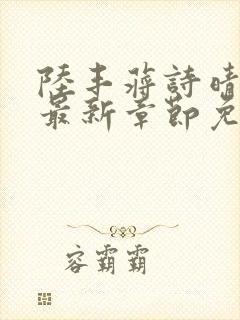 陸丰蒋詩晴
最新章節免
容霸霸